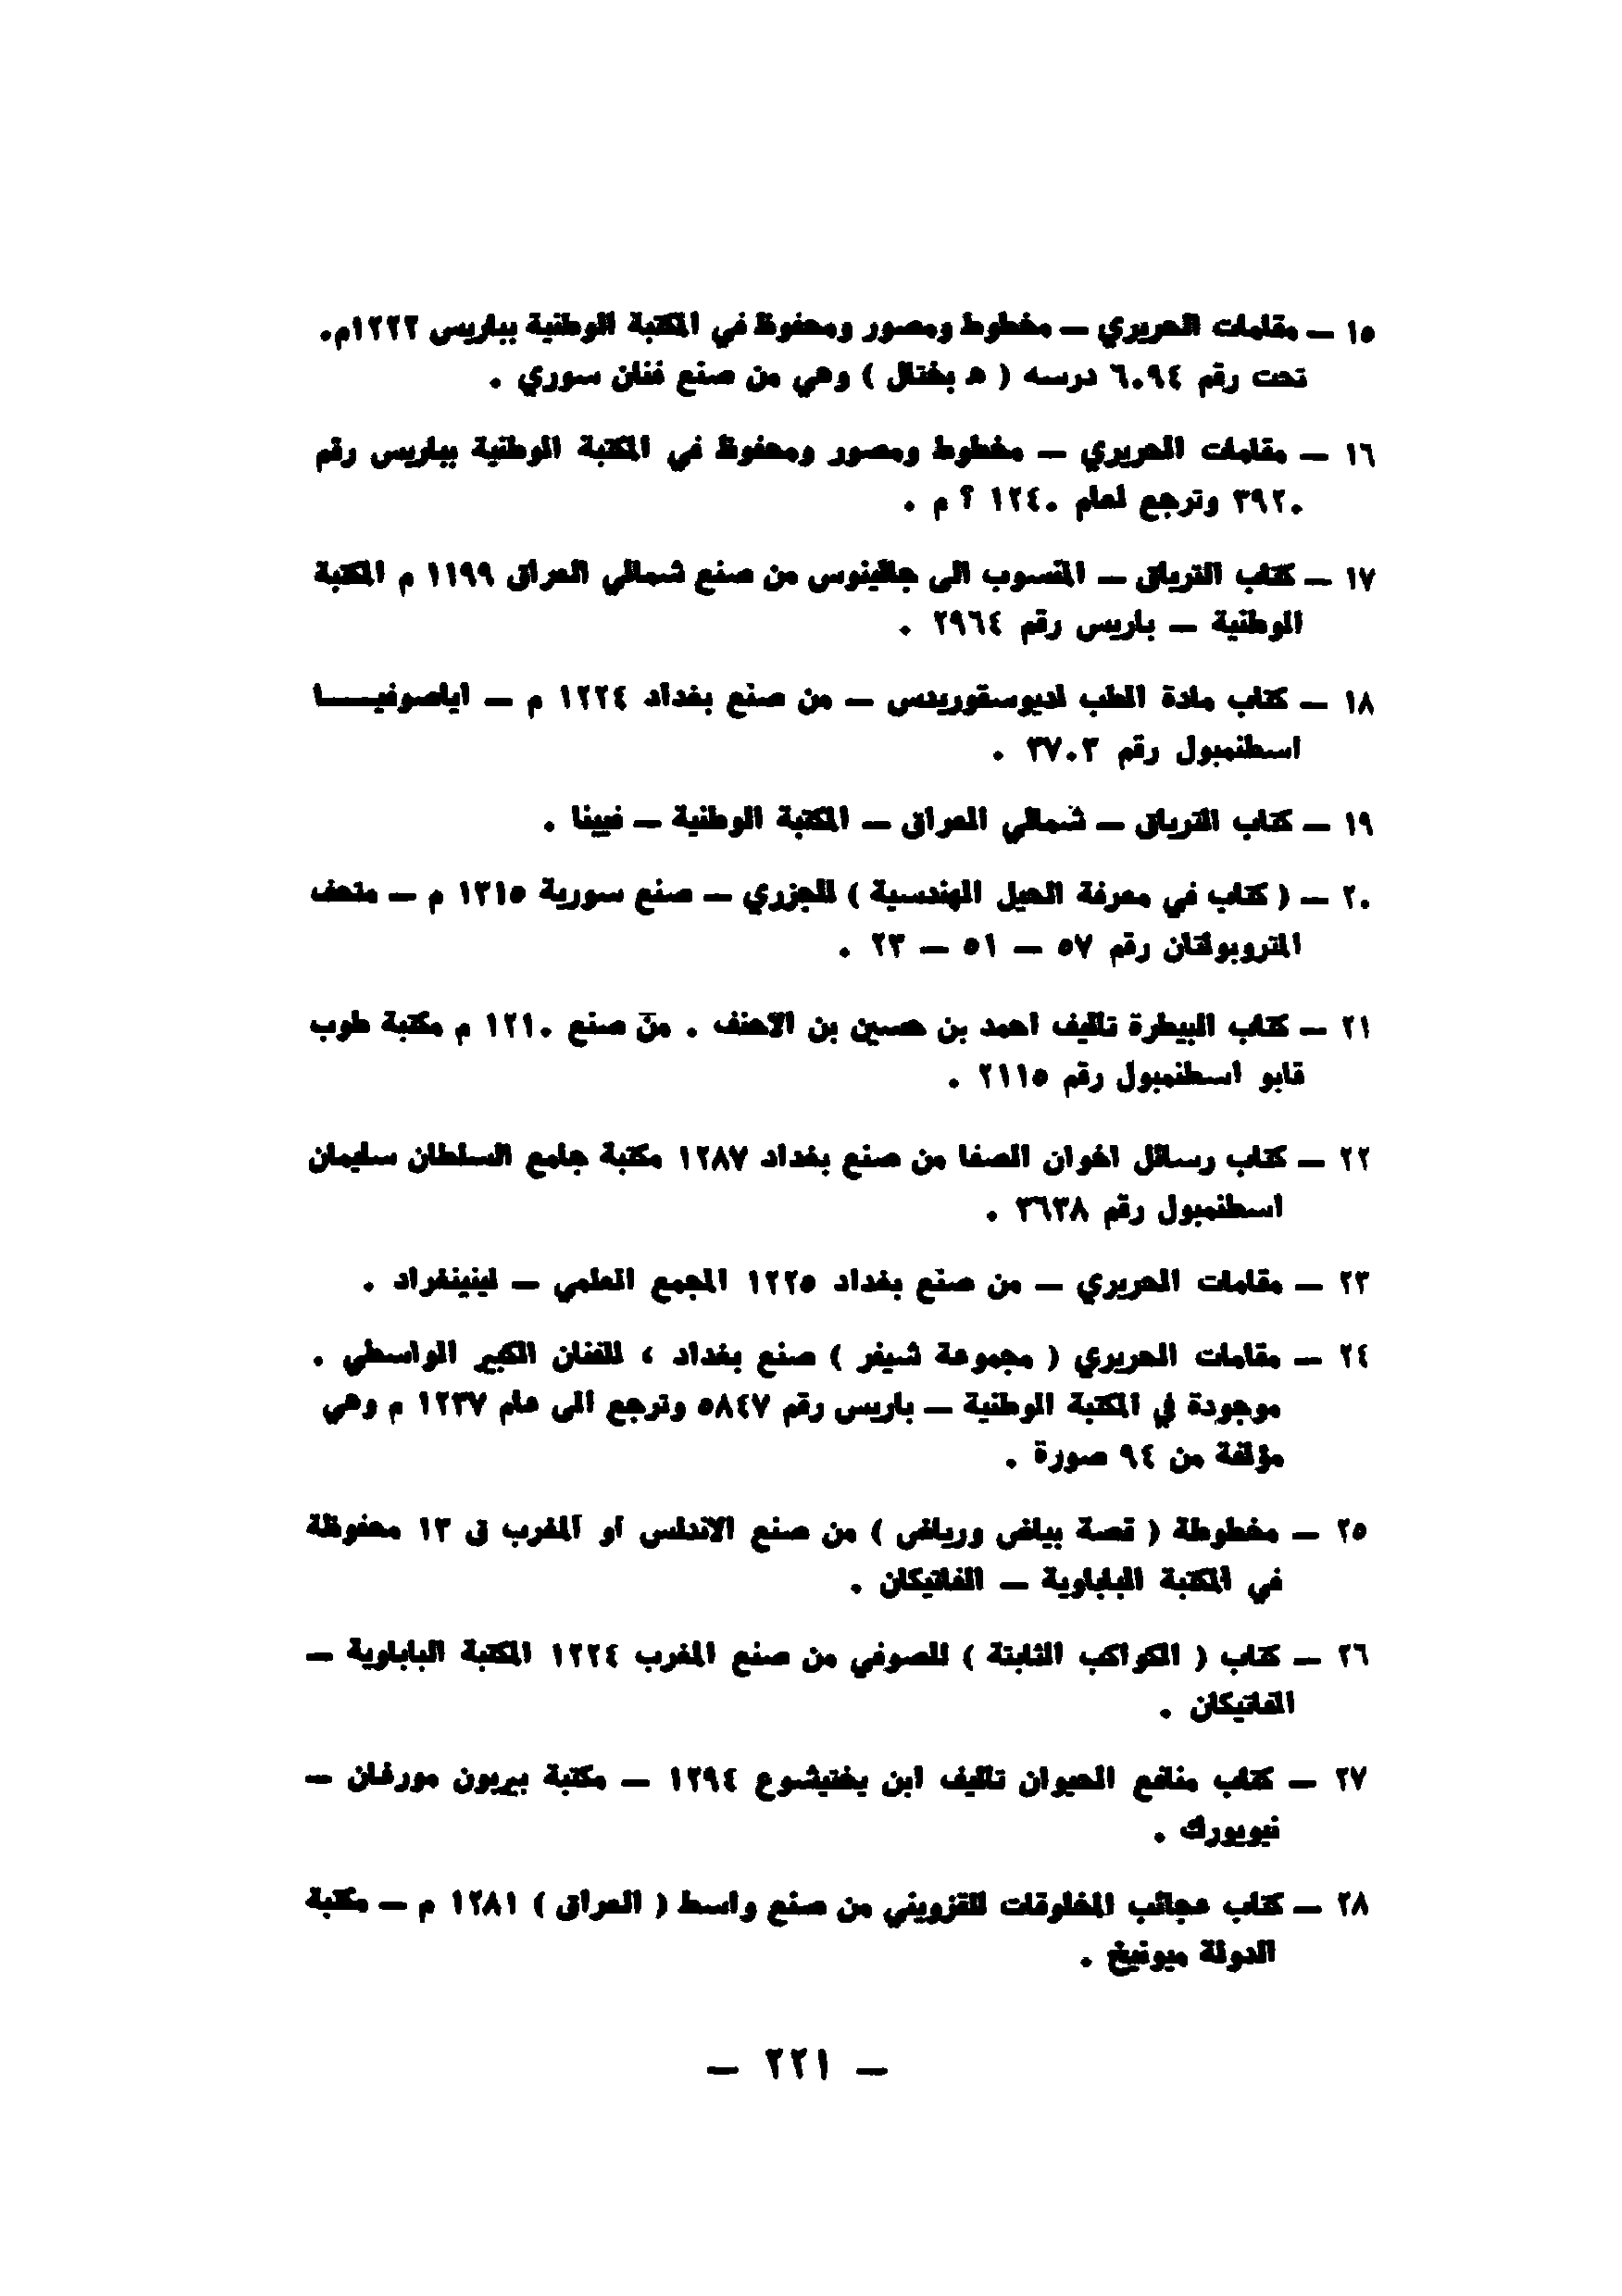 ١٥ — مقامات الحريري — مخطوط ومصور ومحفوظ في المكتبة الوطنية بباريس ١٢٢٢م.
تحت رقم ٦٠٩٤ درسه ( هـ بختال ) وهي من صنع فنان سوري .
١٦ — مقامات الحريري — مخطوط ومصور ومحفوظ في المكتبة الوطنية بباريس رقم
٣٩٢٠ وترجع لعام ١٢٤٠ ؟ م .
١٧ — كتاب الترياق — المنسوب الى جالينوس من صنع شمالي العراق ١١٩٩ م المكتبة
الوطنية — باريس رقم ٢٩٦٤ .
١٨ — كتاب مادة الطب لديوسقوريدس — من صنع بغداد ١٢٢٤ م — اياصوفيـــــا
اسطنمبول رقم ٣٧٠٣ .
١٩ — كتاب الترياق — شمالي العراق — المكتبة الوطنية — فيينا .
٢٠ — ( كتاب في معرفة الحيل الهندسية ) للجزري — صنع سورية ١٣١٥ م — متحف
المتروبولتان رقم ٥٧ — ٥١ — ٢٣ .
٢١ — كتاب البيطرة تأليف احمد بن حسين بن الاحنف . من صنع ١٢١٠ م مكتبة طوب
قابو اسطنمبول رقم ٢١١٥ .
٢٢ — كتاب رسائل اخوان الصفا من صنع بغداد ١٢٨٧ مكتبة جامع السلطان سليمان
اسطنمبول رقم ٣٦٣٨ .
٢٣ — مقامات الحريري — من صنع بغداد ١٢٢٥ المجمع العلمي — لينينغراد .
٢٤ — مقامات الحريري ( مجموعة شيفر ) صنع بغداد ، للفنان الكبير الواسطي .
موجودة في المكتبة الوطنية — باريس رقم ٥٨٤٧ وترجع الى عام ١٢٣٧ م وهي
مؤلفة من ٩٤ صورة .
٢٥ — مخطوطة ( قصة بياض ورياض ) من صنع الاندلس او المغرب ق ١٣ محفوظة
في المكتبة الباباوية — الفاتيكان .
٢٦ — كتاب ( الكواكب الثابتة ) للصوفي من صنع المغرب ١٢٢٤ المكتبة الباباوية —
الفاتيكان .
٢٧ — كتاب منافع الحيوان تأليف ابن بختيشوع ١٢٩٤ — مكتبة بيربون مورغان —
نيويورك .
٢٨ — كتاب عجائب المخلوقات للقزويني من صنع واسط ( العراق ) ١٢٨١ م — مكتبة
الدولة ميونيخ .
— ٢٢١ —